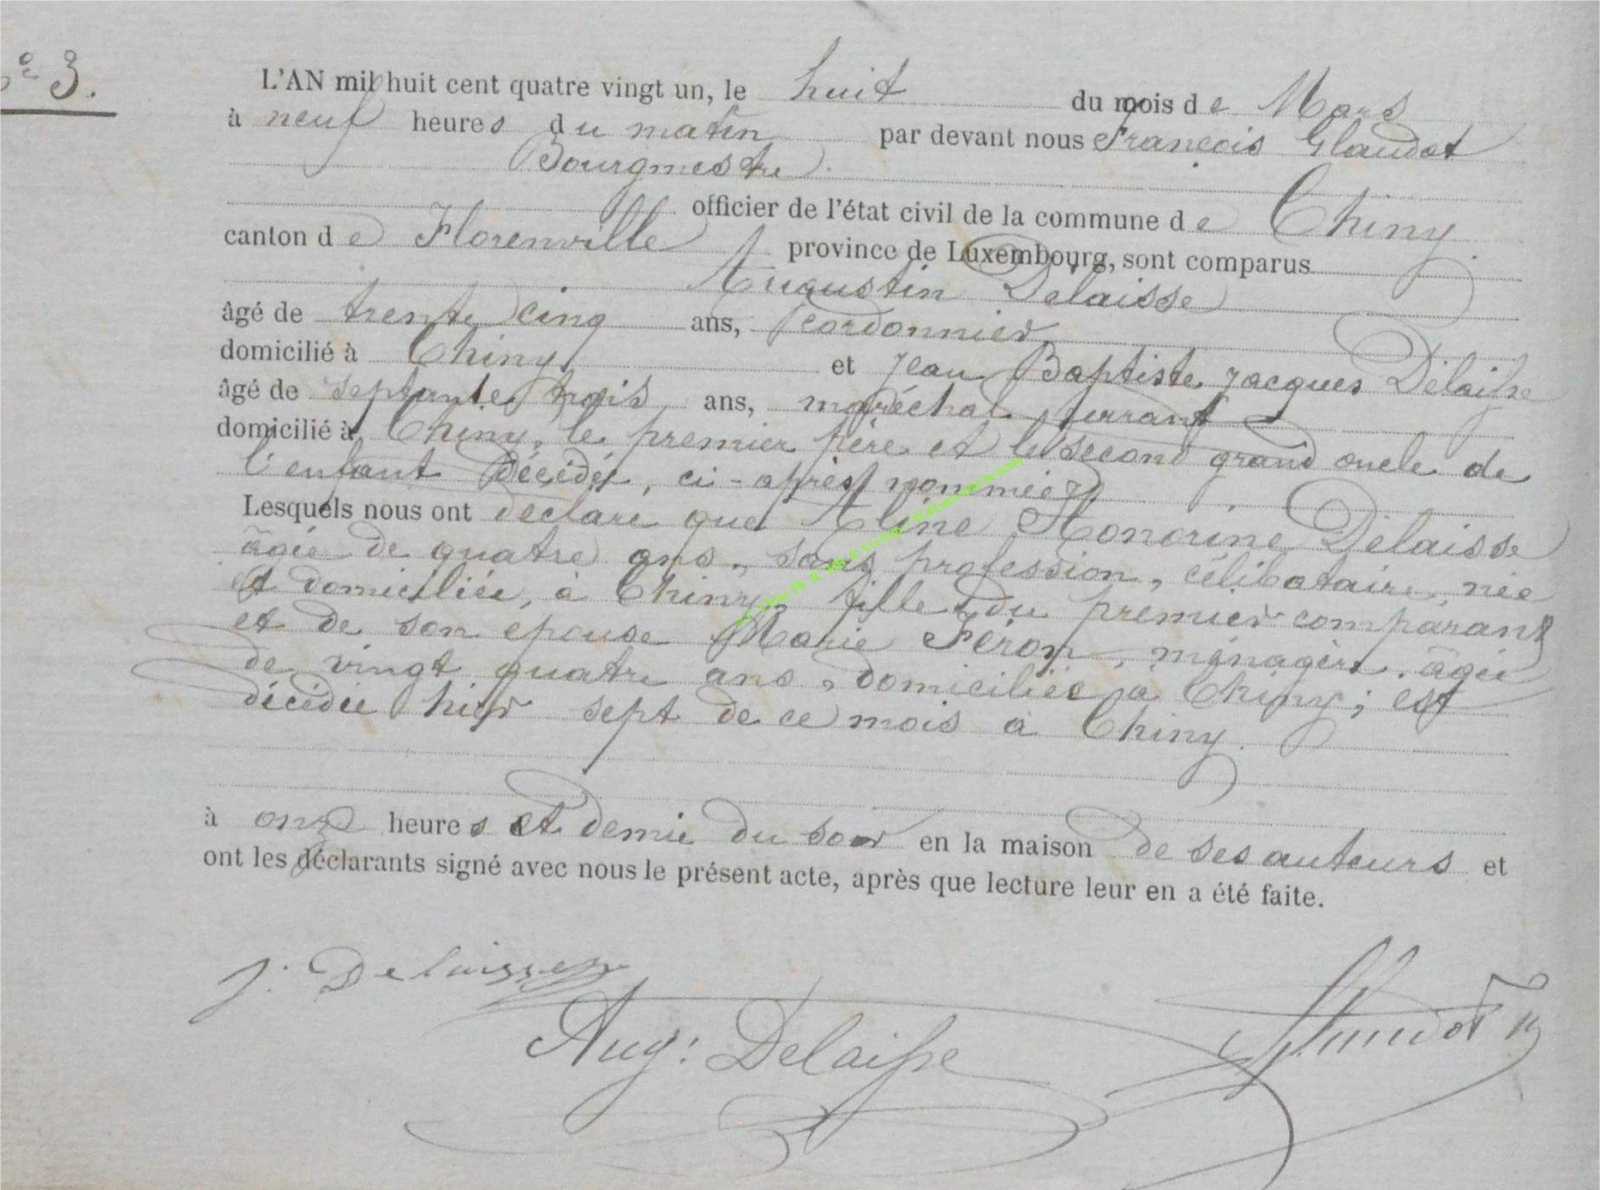 N° 3.
L'AN mil huit cent quatre vingt un, le huit du mois de Mars
à neuf heures du matin par devant nous François Glaudot
Bourgmestre
officier de l'état civil de la commune de Chiny
canton de Florenville province de Luxembourg, sont comparus
Augustin Delaisse
âgé de trente cinq ans, cordonnier
domicilié à Chiny et Jean Baptiste Jacques Delaisse
âgé de septante trois ans, maréchal ferrant
domicilié à Chiny, le premier père et le second grand oncle de
l'enfant décédé, ci-après nommée
Lesquels nous ont déclaré que Aline Honorine Delaisse
âgée de quatre ans, sans profession, célibataire, née
et domiciliée, à Chiny, fille du premier comparant
et de son epouse Marie Féron, ménagère, âgée
de vingt quatre ans, domiciliée à Chiny; est
décédée hier sept de ce mois à Chiny.
à onze heures et demie du soir en la maison de ses auteurs et
ont les déclarants signé avec nous le présent acte, après que lecture leur en a été faite.
J. Delaisse
Aug: Delaisse
Glaudot